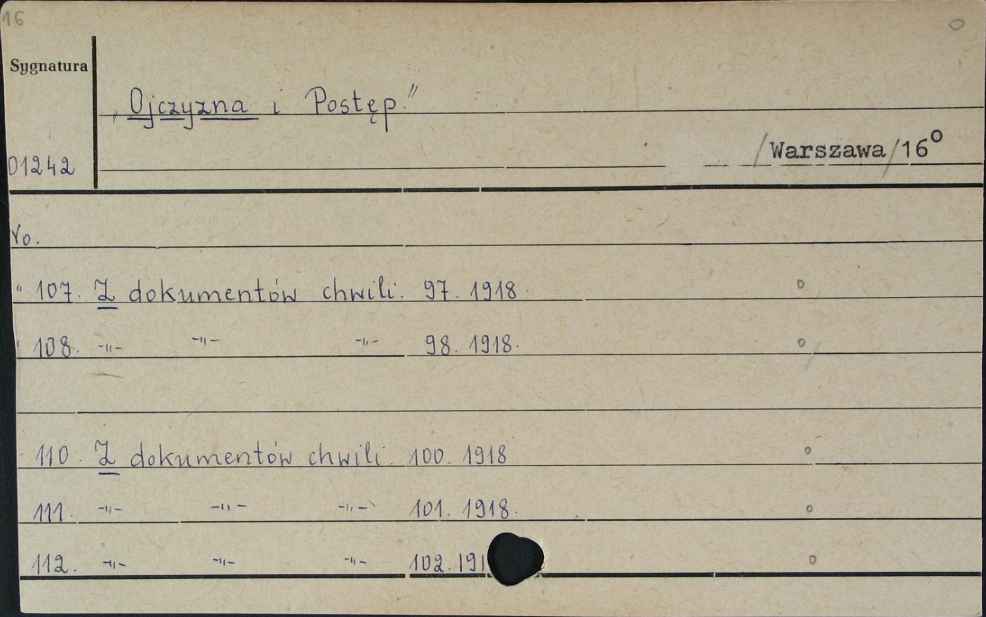 16
Sygnatura
„Ojczyzna i Postęp."
01242
/Warszawa/16°
No.
" 107. Z dokumentów chwili. 97. 1918 °
108. -"- -"- -"- 98. 1918. °
110. Z dokumentów chwili. 100. 1918 °
111. -"- -"- -"- 101. 1918. °
112. -"- -"- -"- 102. 191 °